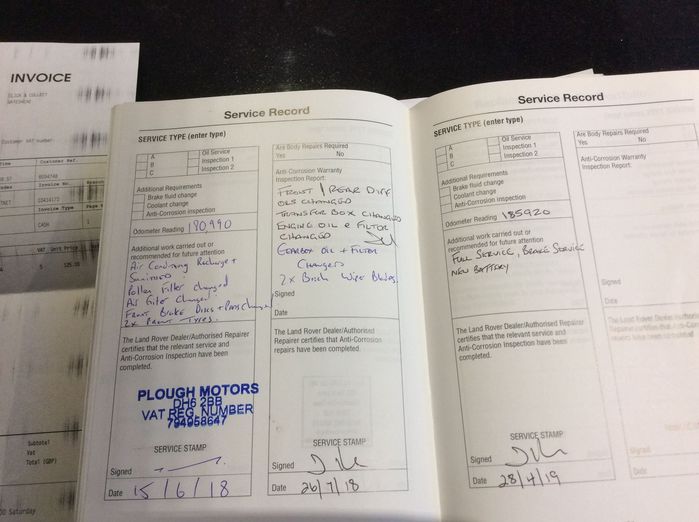 INVOICE
CLICK & COLLECT
GATESHEAD
Customer VAT number
Time
Customer Ref.
Invoice No.
Invoice Type
CASH
VAT
Unit Price
Subtotal
Vat
Total (GBP)
00 Saturday
Service Record
SERVICE TYPE (enter type)
A
B
C
Oil Service
Inspection 1
Inspection 2
Additional Requirements
Brake fluid change
Coolant change
Anti-Corrosion inspection
Odometer Reading 180,990
Additional work carried out or
recommended for future attention
Air Conditioning Recharge +
Sanitised
Pollen Filter changed
Air filter changed
Front Brake Discs + Pads Changed
2x Front Tyres.
The Land Rover Dealer/Authorised Repairer
certifies that the relevant service and
Anti-Corrosion Inspection have been
completed.
PLOUGH MOTORS
DH6 2BB
VAT REG NUMBER
794958647
SERVICE STAMP
Signed
Date 15/6/18
Are Body Repairs Required
Yes No
Anti-Corrosion Warranty
Inspection Report:
FRONT / REAR DIFF
OILS CHANGED
TRANSFER BOX CHANGED
ENGINE OIL & FILTER
CHANGED
GEARBOX OIL + FILTER
CHANGED
2x Bosch Wiper Blades.
Signed
Date
The Land Rover Dealer/Authorised
Repairer certifies that Anti-Corrosion
repairs have been completed.
SERVICE STAMP
Signed
Date 26/7/18
Service Record
SERVICE TYPE (enter type)
A
B
C
Oil Service
Inspection 1
Inspection 2
Additional Requirements
Brake fluid change
Coolant change
Anti-Corrosion inspection
Odometer Reading 185920
Additional work carried out or
recommended for future attention
FULL SERVICE, BRAKE SERVICE
NEW BATTERY
The Land Rover Dealer/Authorised Repairer
certifies that the relevant service and
Anti-Corrosion Inspection have been
completed.
SERVICE STAMP
Signed
Date 28/4/19
Are Body Repairs Required
Yes No
Anti-Corrosion Warranty
Inspection Report:
Signed
Date
The Land Rover Dealer/Authorised
Repairer certifies that Anti-Corrosion
repairs have been completed.
Signed
Date